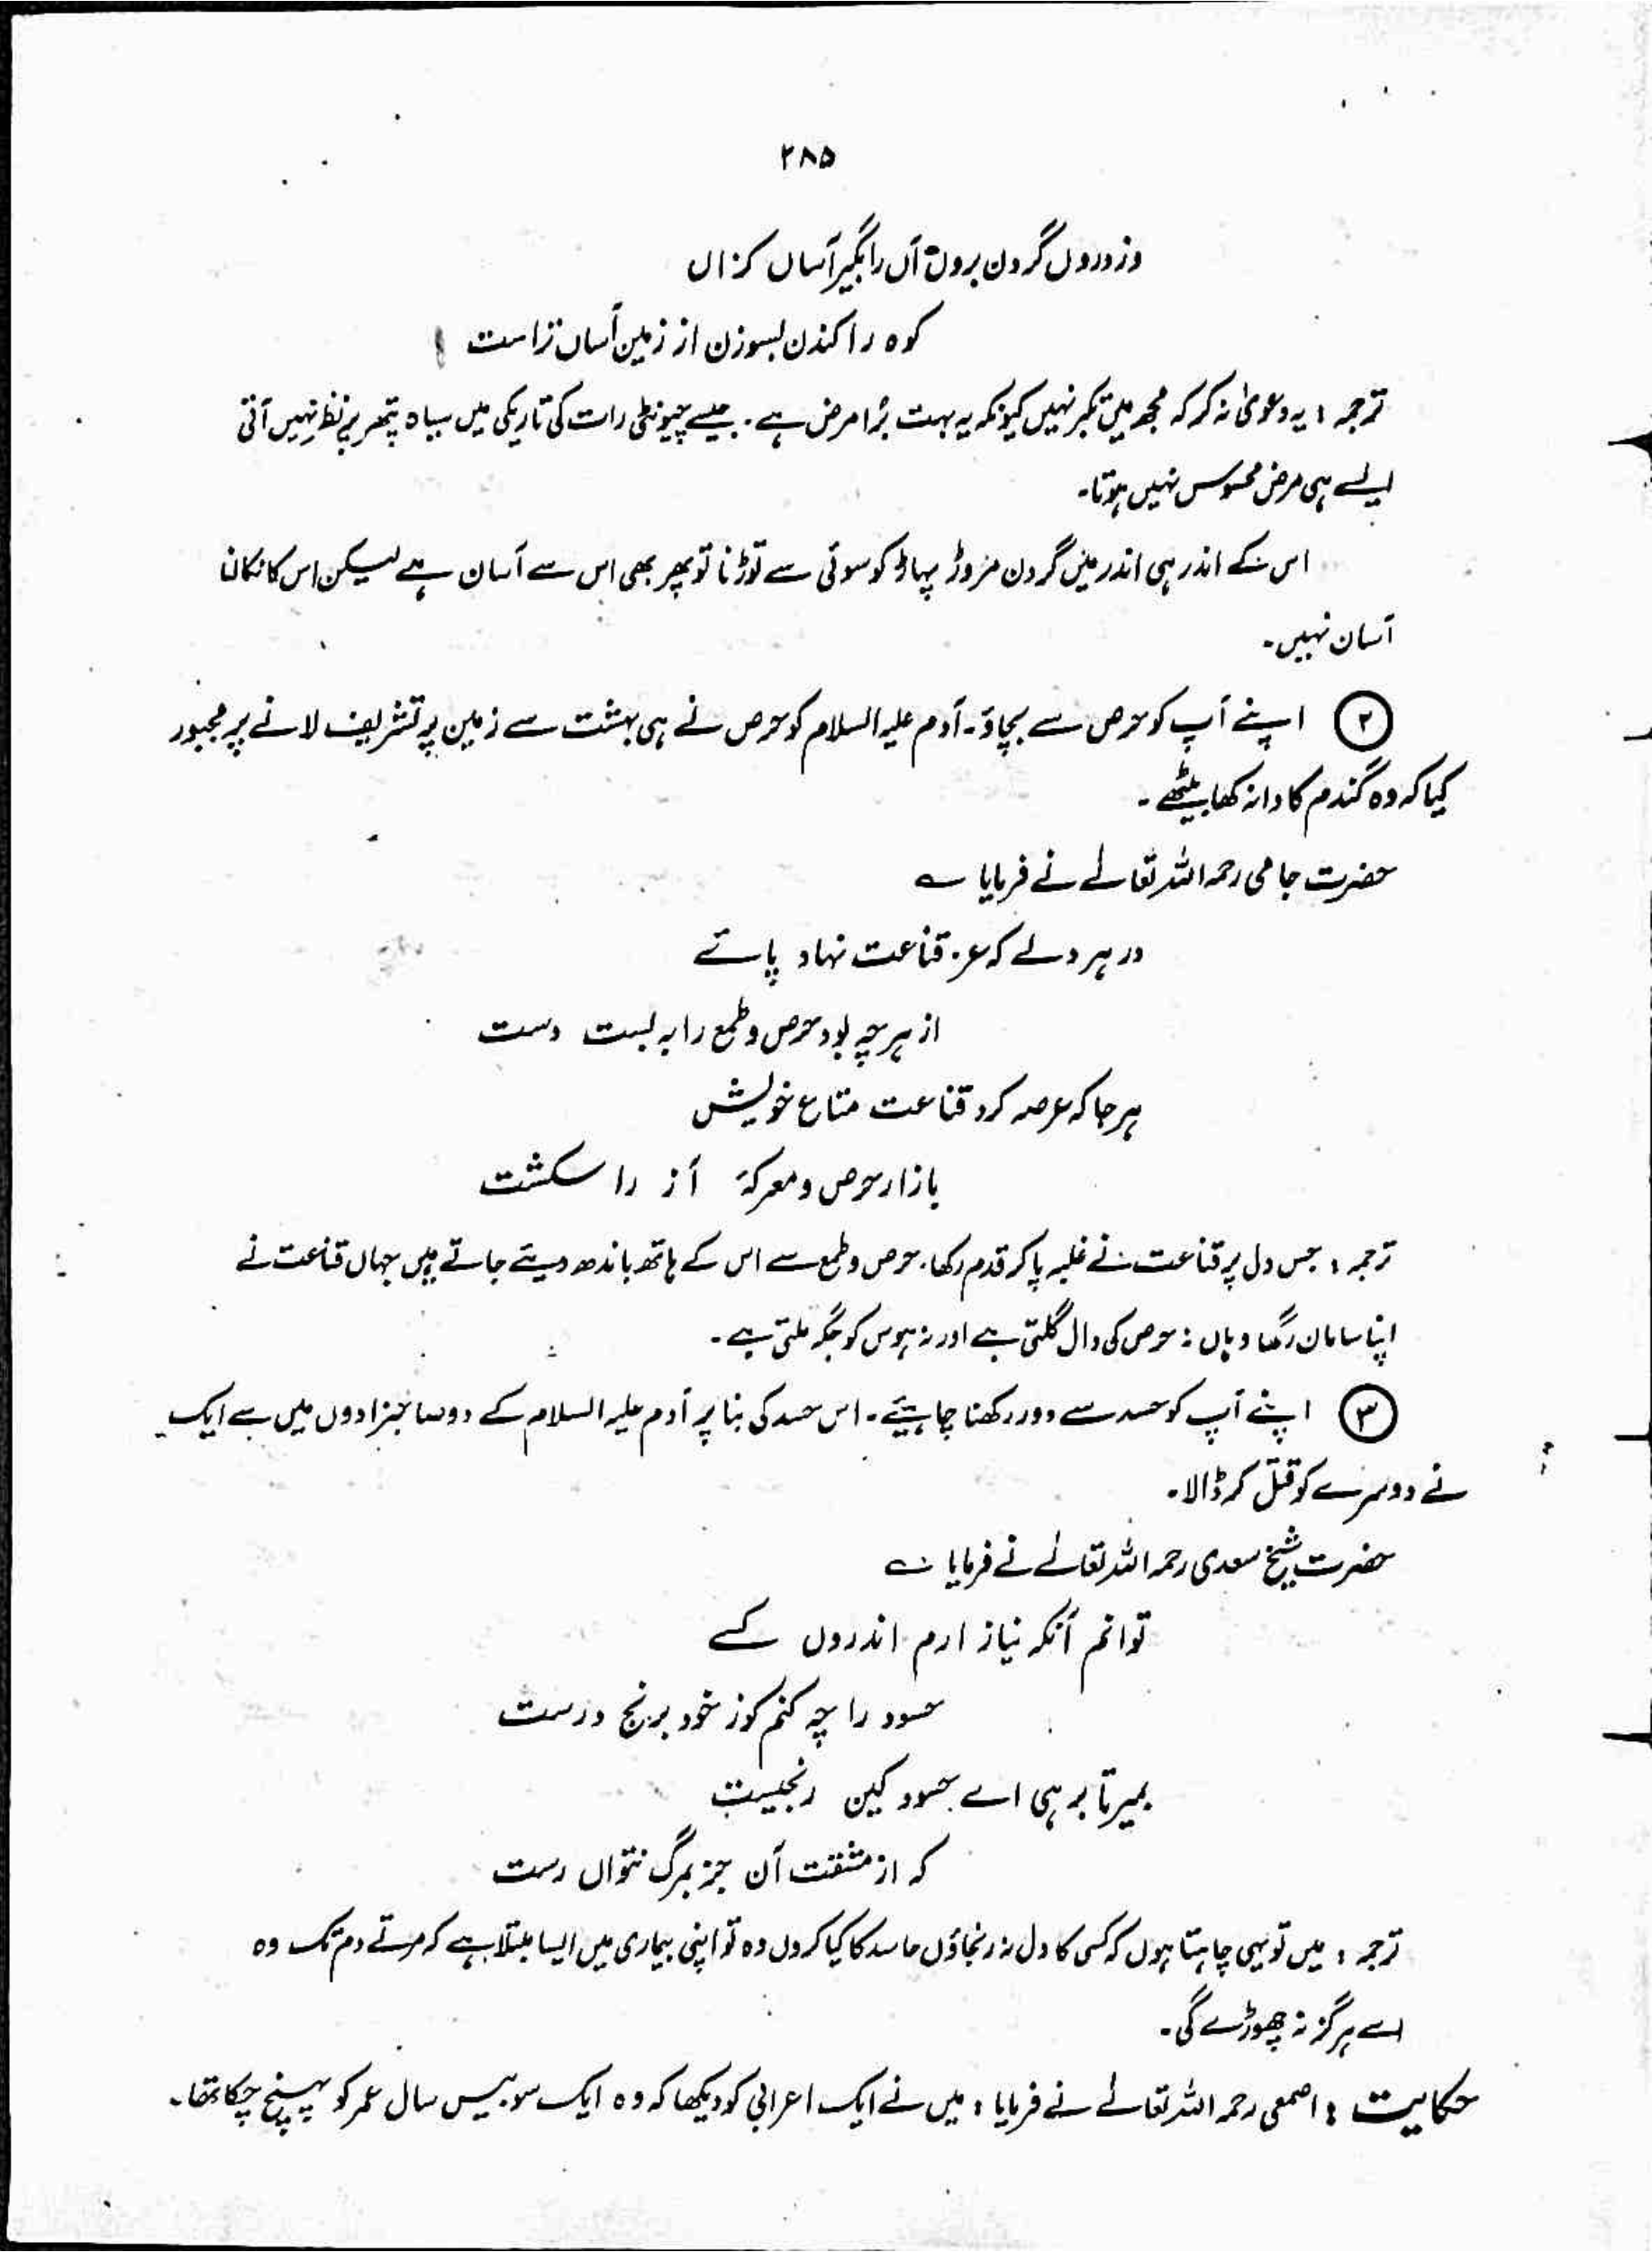 ۲۸۵
وز درول گردن بروں آں را مگیر آساں کزاں
کوہ را کندن بسوزن از زمین آساں تراست
ترجمہ : یہ دعویٰ نہ کر کہ مجھ میں تکبر نہیں کیونکہ یہ بہت بُرا مرض ہے ۔ جیسے چیونٹی رات کی تاریکی میں سیاہ پتھر پر نظر نہیں آتی
ایسے ہی مرض محسوس نہیں ہوتا۔
اس کے اندر ہی اندر میں گردن مروڑ پہاڑ کو سوئی سے توڑنا تو پھر بھی اس سے آسان ہے لیکن اس کا نکالنا
آسان نہیں۔
۲ اپنے آپ کو حرص سے بچاؤ۔ آدم علیہ السلام کو حرص نے ہی بہشت سے زمین پر تشریف لانے پر مجبور
کیا کہ وہ گندم کا دانہ کھا بیٹھے ۔
حضرت جامی رحمہ اللہ تعالےٰ نے فرمایا ؎
در ہر دلے کہ عز قناعت نہاد پائے
از ہر چہ بود حرص و طمع را بہ بست دست
ہر جا کہ عرصہ کرد قناعت متاع خویش
بازار حرص و معرکۂ آز را سکشت
ترجمہ : جس دل پر قناعت نے غلبہ پا کر قدم رکھا، حرص و طمع سے اس کے ہاتھ باندھ دیئے جاتے ہیں جہاں قناعت نے
اپنا سامان رکھا وہاں نہ حرص کی دال گلتی ہے اور نہ ہوس کو جگہ ملتی ہے ۔
۳ اپنے آپ کو حسد سے دور رکھنا چاہیئے ۔ اس حسد کی بنا پر آدم علیہ السلام کے دو صاحبزادوں میں سے ایک
نے دوسرے کو قتل کر ڈالا ۔
حضرت شیخ سعدی رحمہ اللہ تعالےٰ نے فرمایا ؎
توانم آنکہ نیازارم اندروں کسے
حسود را چہ کنم کوز خود برنج درست
بمیر تا برہی اے حسود کین رنجیست
کہ از مشقت آن جز بمرگ نتواں رست
ترجمہ : میں تو یہی چاہتا ہوں کہ کسی کا دل نہ رنجاؤں حاسد کا کیا کروں وہ تو اپنی بیماری میں ایسا مبتلا ہے کہ مرتے دم تک وہ
اسے ہرگز نہ چھوڑے گی ۔
حکایت : اصمعی رحمہ اللہ تعالےٰ نے فرمایا : میں نے ایک اعرابی کو دیکھا کہ وہ ایک سو بیس سال عمر کو پہنچ چکا تھا ۔